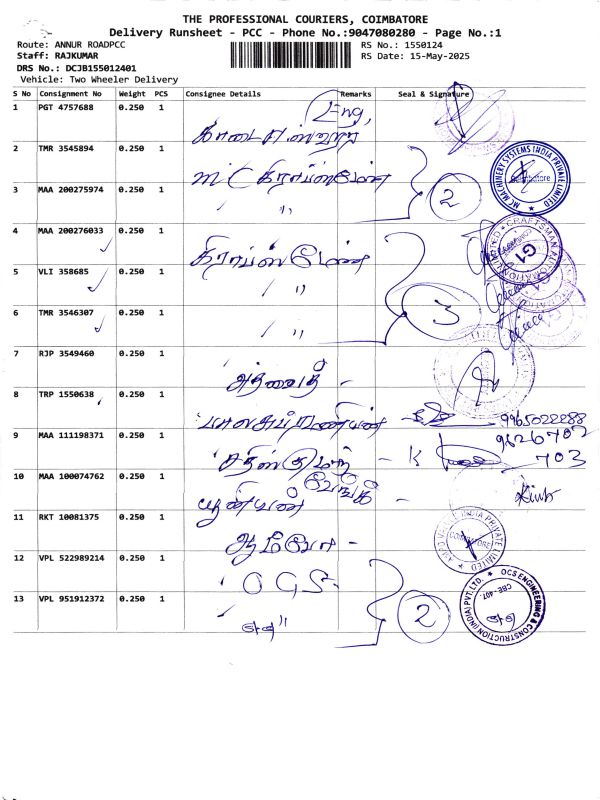 THE PROFESSIONAL COURIERS, COIMBATORE
Delivery Runsheet - PCC - Phone No.:9047080280 - Page No.:1
Route: ANNUR ROADPCC
RS No.: 1550124
Staff: RAJKUMAR
RS Date: 15-May-2025
DRS No.: DCJB155012401
Vehicle: Two Wheeler Delivery
S No Consignment No Weight PCS Consignee Details Remarks Seal & Signature
1 PGT 4757688 0.250 1
Eng,
2 TMR 3545894 0.250 1
MC கிராப்ஸ்மேன்
2
MC MACHINERY SYSTEMS INDIA PRIVATE LIMITED
Coimbatore
3 MAA 200275974 0.250 1 / "
4 MAA 200276033 0.250 1
கிராப்ஸ்மேன்
CRAFTSMAN AUTOMATION LIMITED
G1
5 VLI 358685 0.250 1 / "
3
6 TMR 3546307 0.250 1 / "
7 RJP 3549460 0.250 1
8 TRP 1550638 0.250 1
பாலசுப்ரணியன் 9965022288
9 MAA 111198371 0.250 1
சதிஸ்குமார் - K 9626707
703
10 MAA 100074762 0.250 1
11 RKT 10081375 0.250 1
INDIA PRIVATE LIMITED
COIMBATORE
12 VPL 522989214 0.250 1
OGS
2
OCS ENGINEERING & CONSTRUCTION (INDIA) PVT. LTD.
CBE-407.
13 VPL 951912372 0.250 1